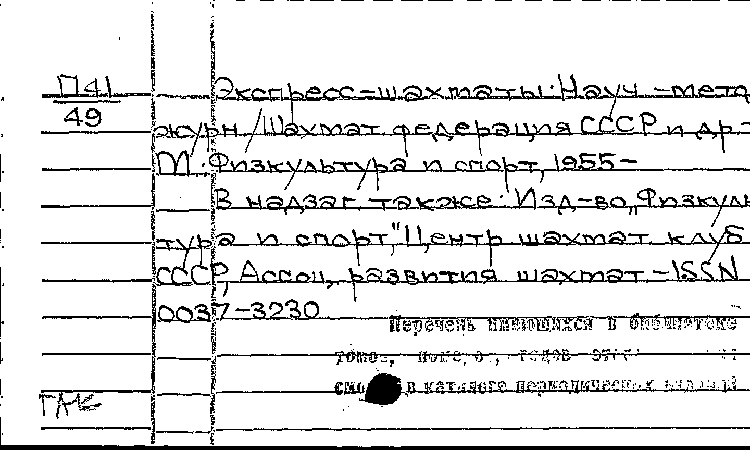 П41
49
Экспресс-шахматы: Науч.-метод.
журн./Шахмат. федерация СССР и др.-
М.: Физкультура и спорт, 1955-
В надзаг. также: Изд-во „Физкуль
тура и спорт," Центр. шахмат. клуб
СССР, Ассоц. развития шахмат.-ISSN
0037-3230
Перечень имеющихся в библиотеке
томов, годов
в каталоге периодических изданий
ГАК